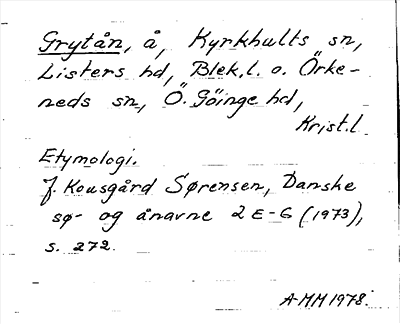 Grytån, å, Kyrkhults sn,
Listers hd, Blek.l. o. Örke-
neds sn, Ö. Göinge hd,
Krist.l.
Etymologi.
J. Kousgård Sørensen, Danske
sø- og ånavne 2 E-G (1973),
s. 272.
A-MM 1978.